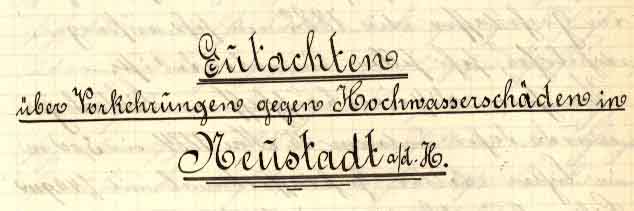 Gutachten
über Vorkehrungen gegen Hochwasserschäden in
Neustadt a/d. H.